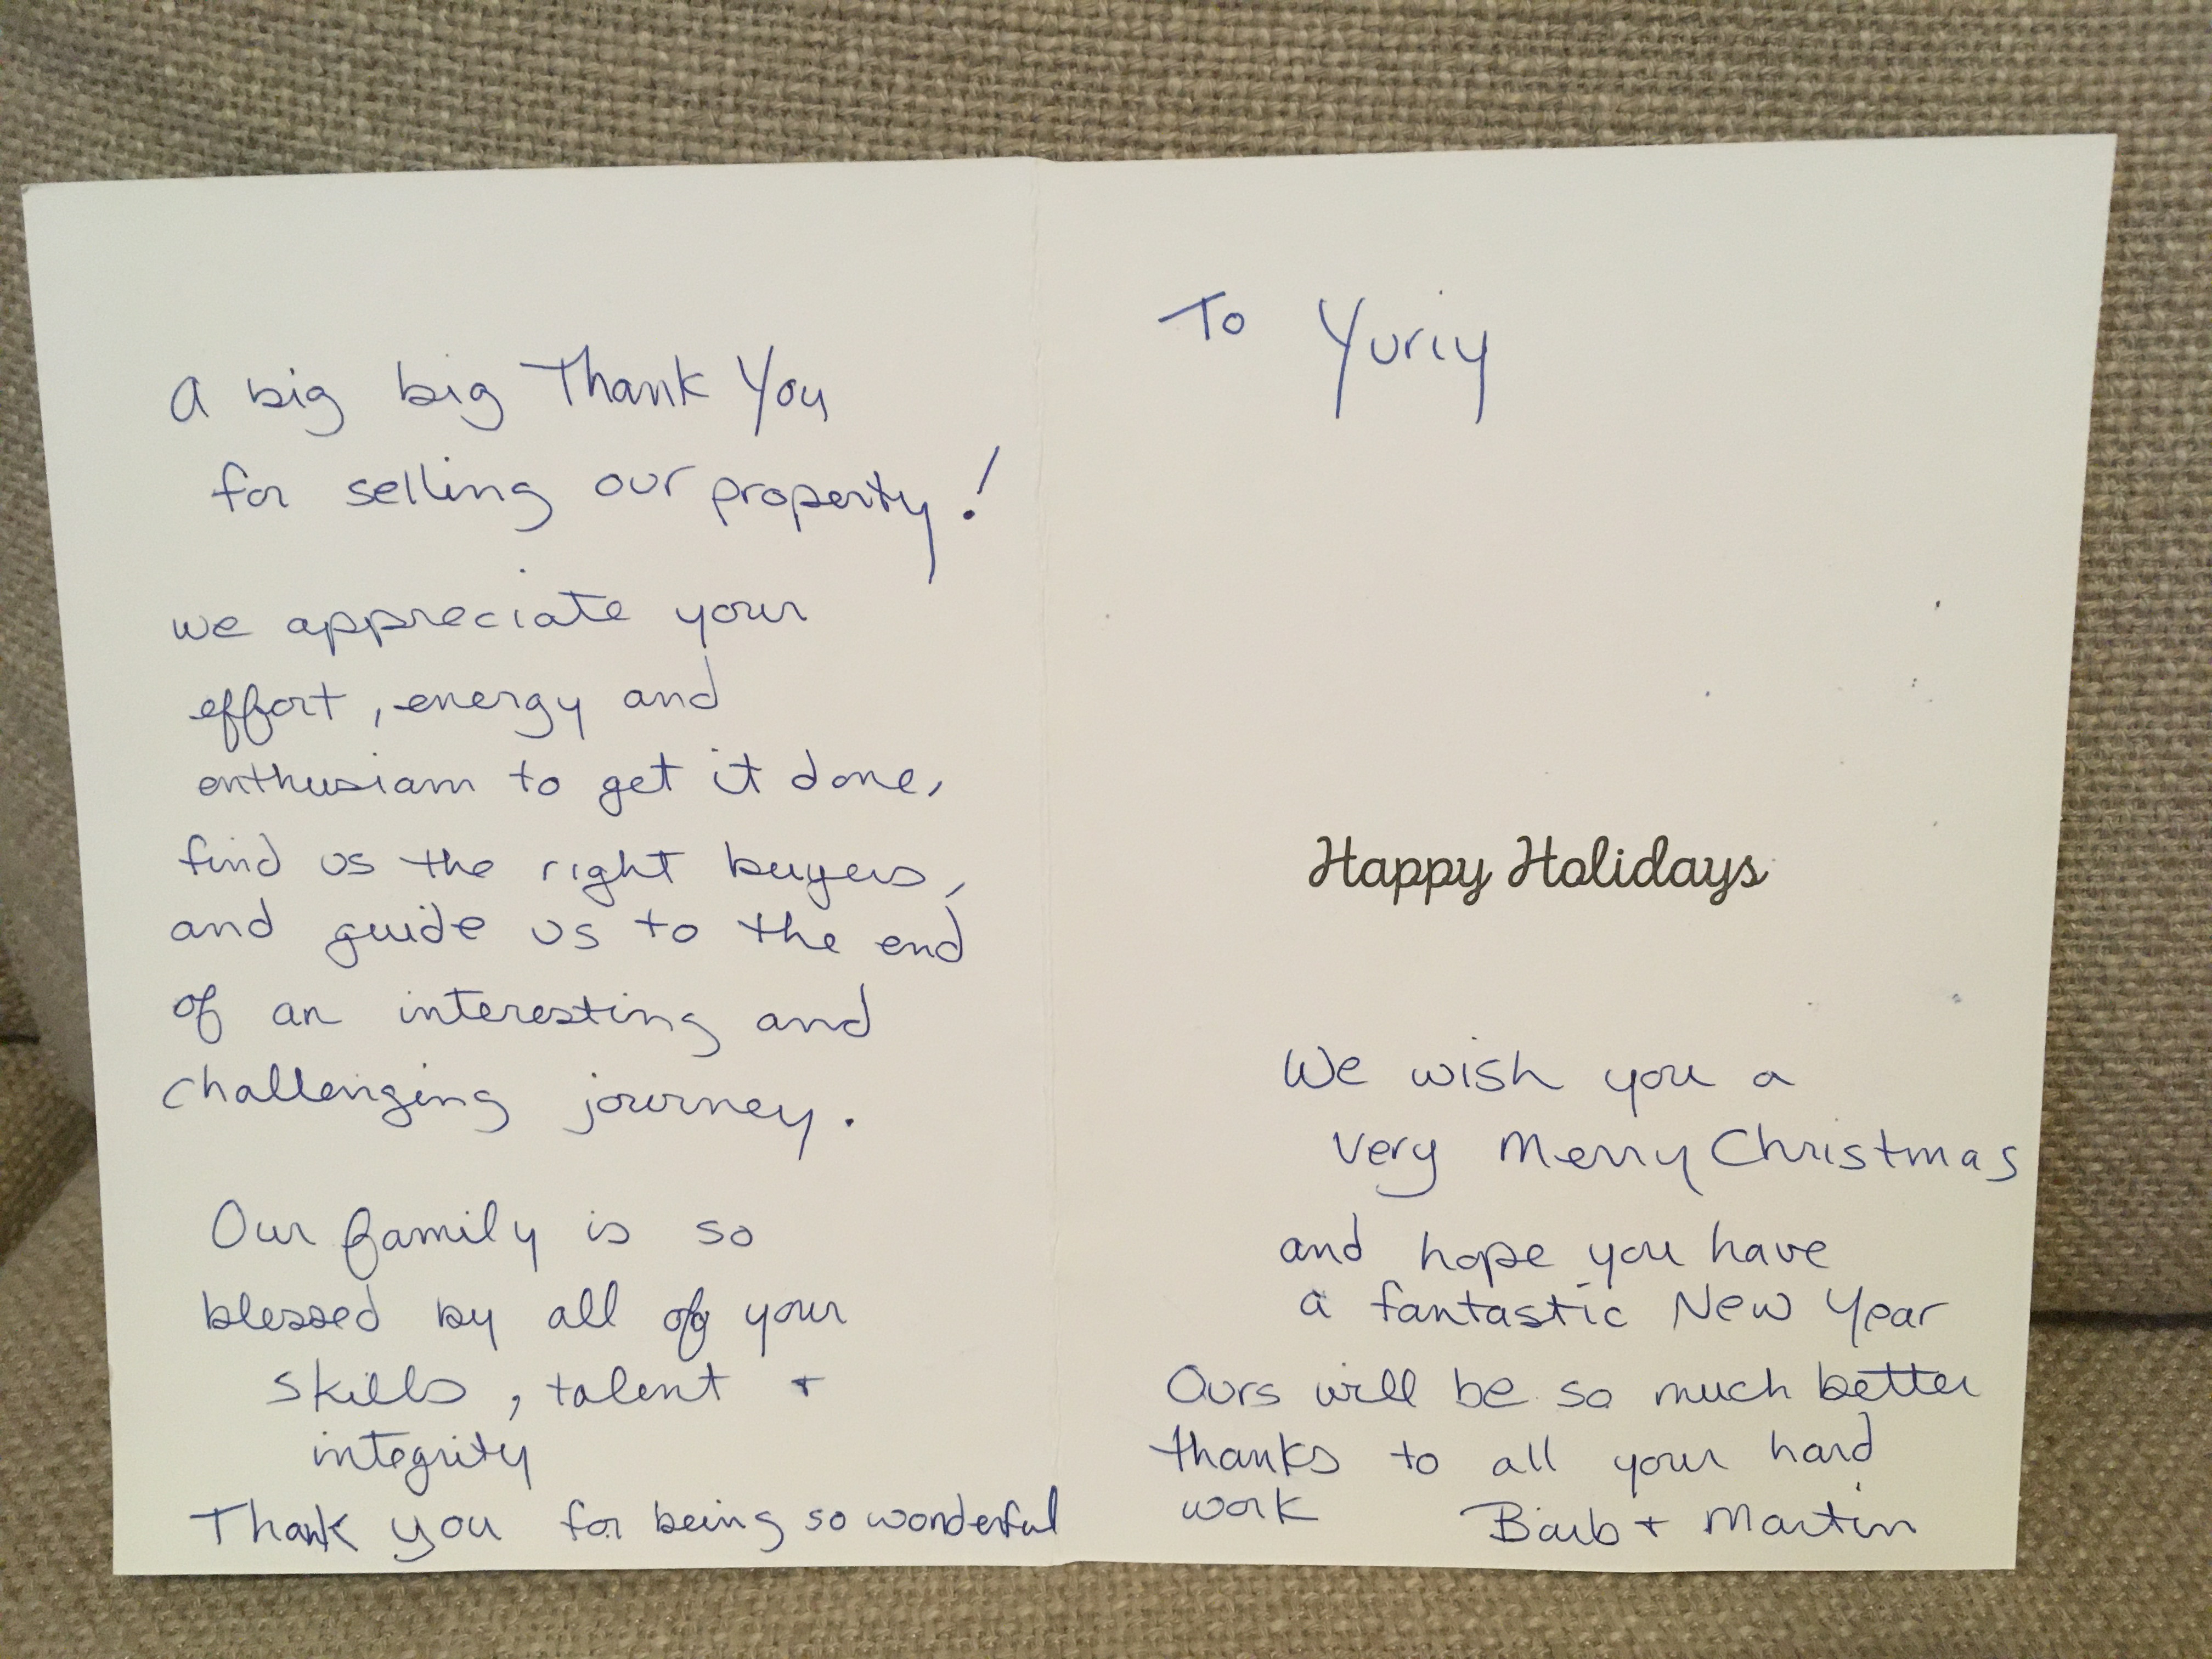 A big big Thank You
for selling our property!
we appreciate your
effort, energy and
enthusiam to get it done,
find us the right buyers,
and guide us to the end
of an interesting and
challenging journey.
Our family is so
blessed by all of your
skills, talent +
integrity
Thank you for being so wonderful
To Yuriy
Happy Holidays
We wish you a
very Merry Christmas
and hope you have
a fantastic New Year
Ours will be so much better
thanks to all your hard
work Barb + Martin